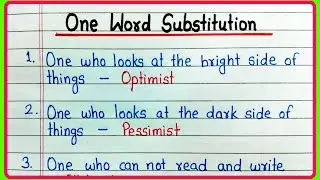 One Word Substitution
1. One who looks at the bright side of
things – Optimist
2. One who looks at the dark side of
things – Pessimist
3. One who can not read and write